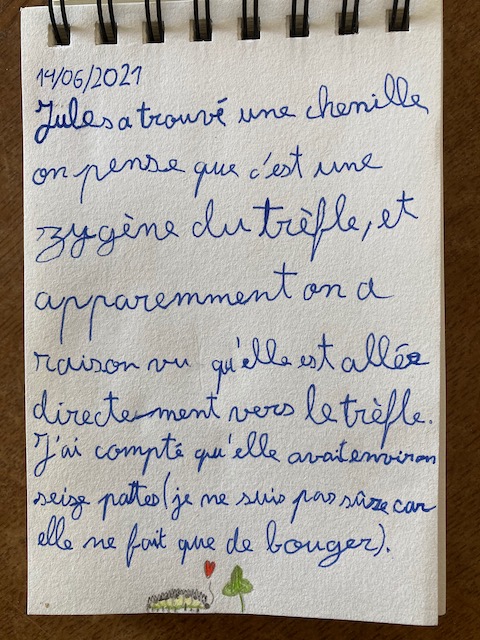 14/06/2021
Jules a trouvé une chenille
on pense que c'est une
zygène du trèfle, et
apparemment on a
raison vu qu'elle est allée
directement vers le trèfle.
J'ai compté qu'elle avait environ
seize pattes (je ne suis pas sûre car
elle ne fait que de bouger).